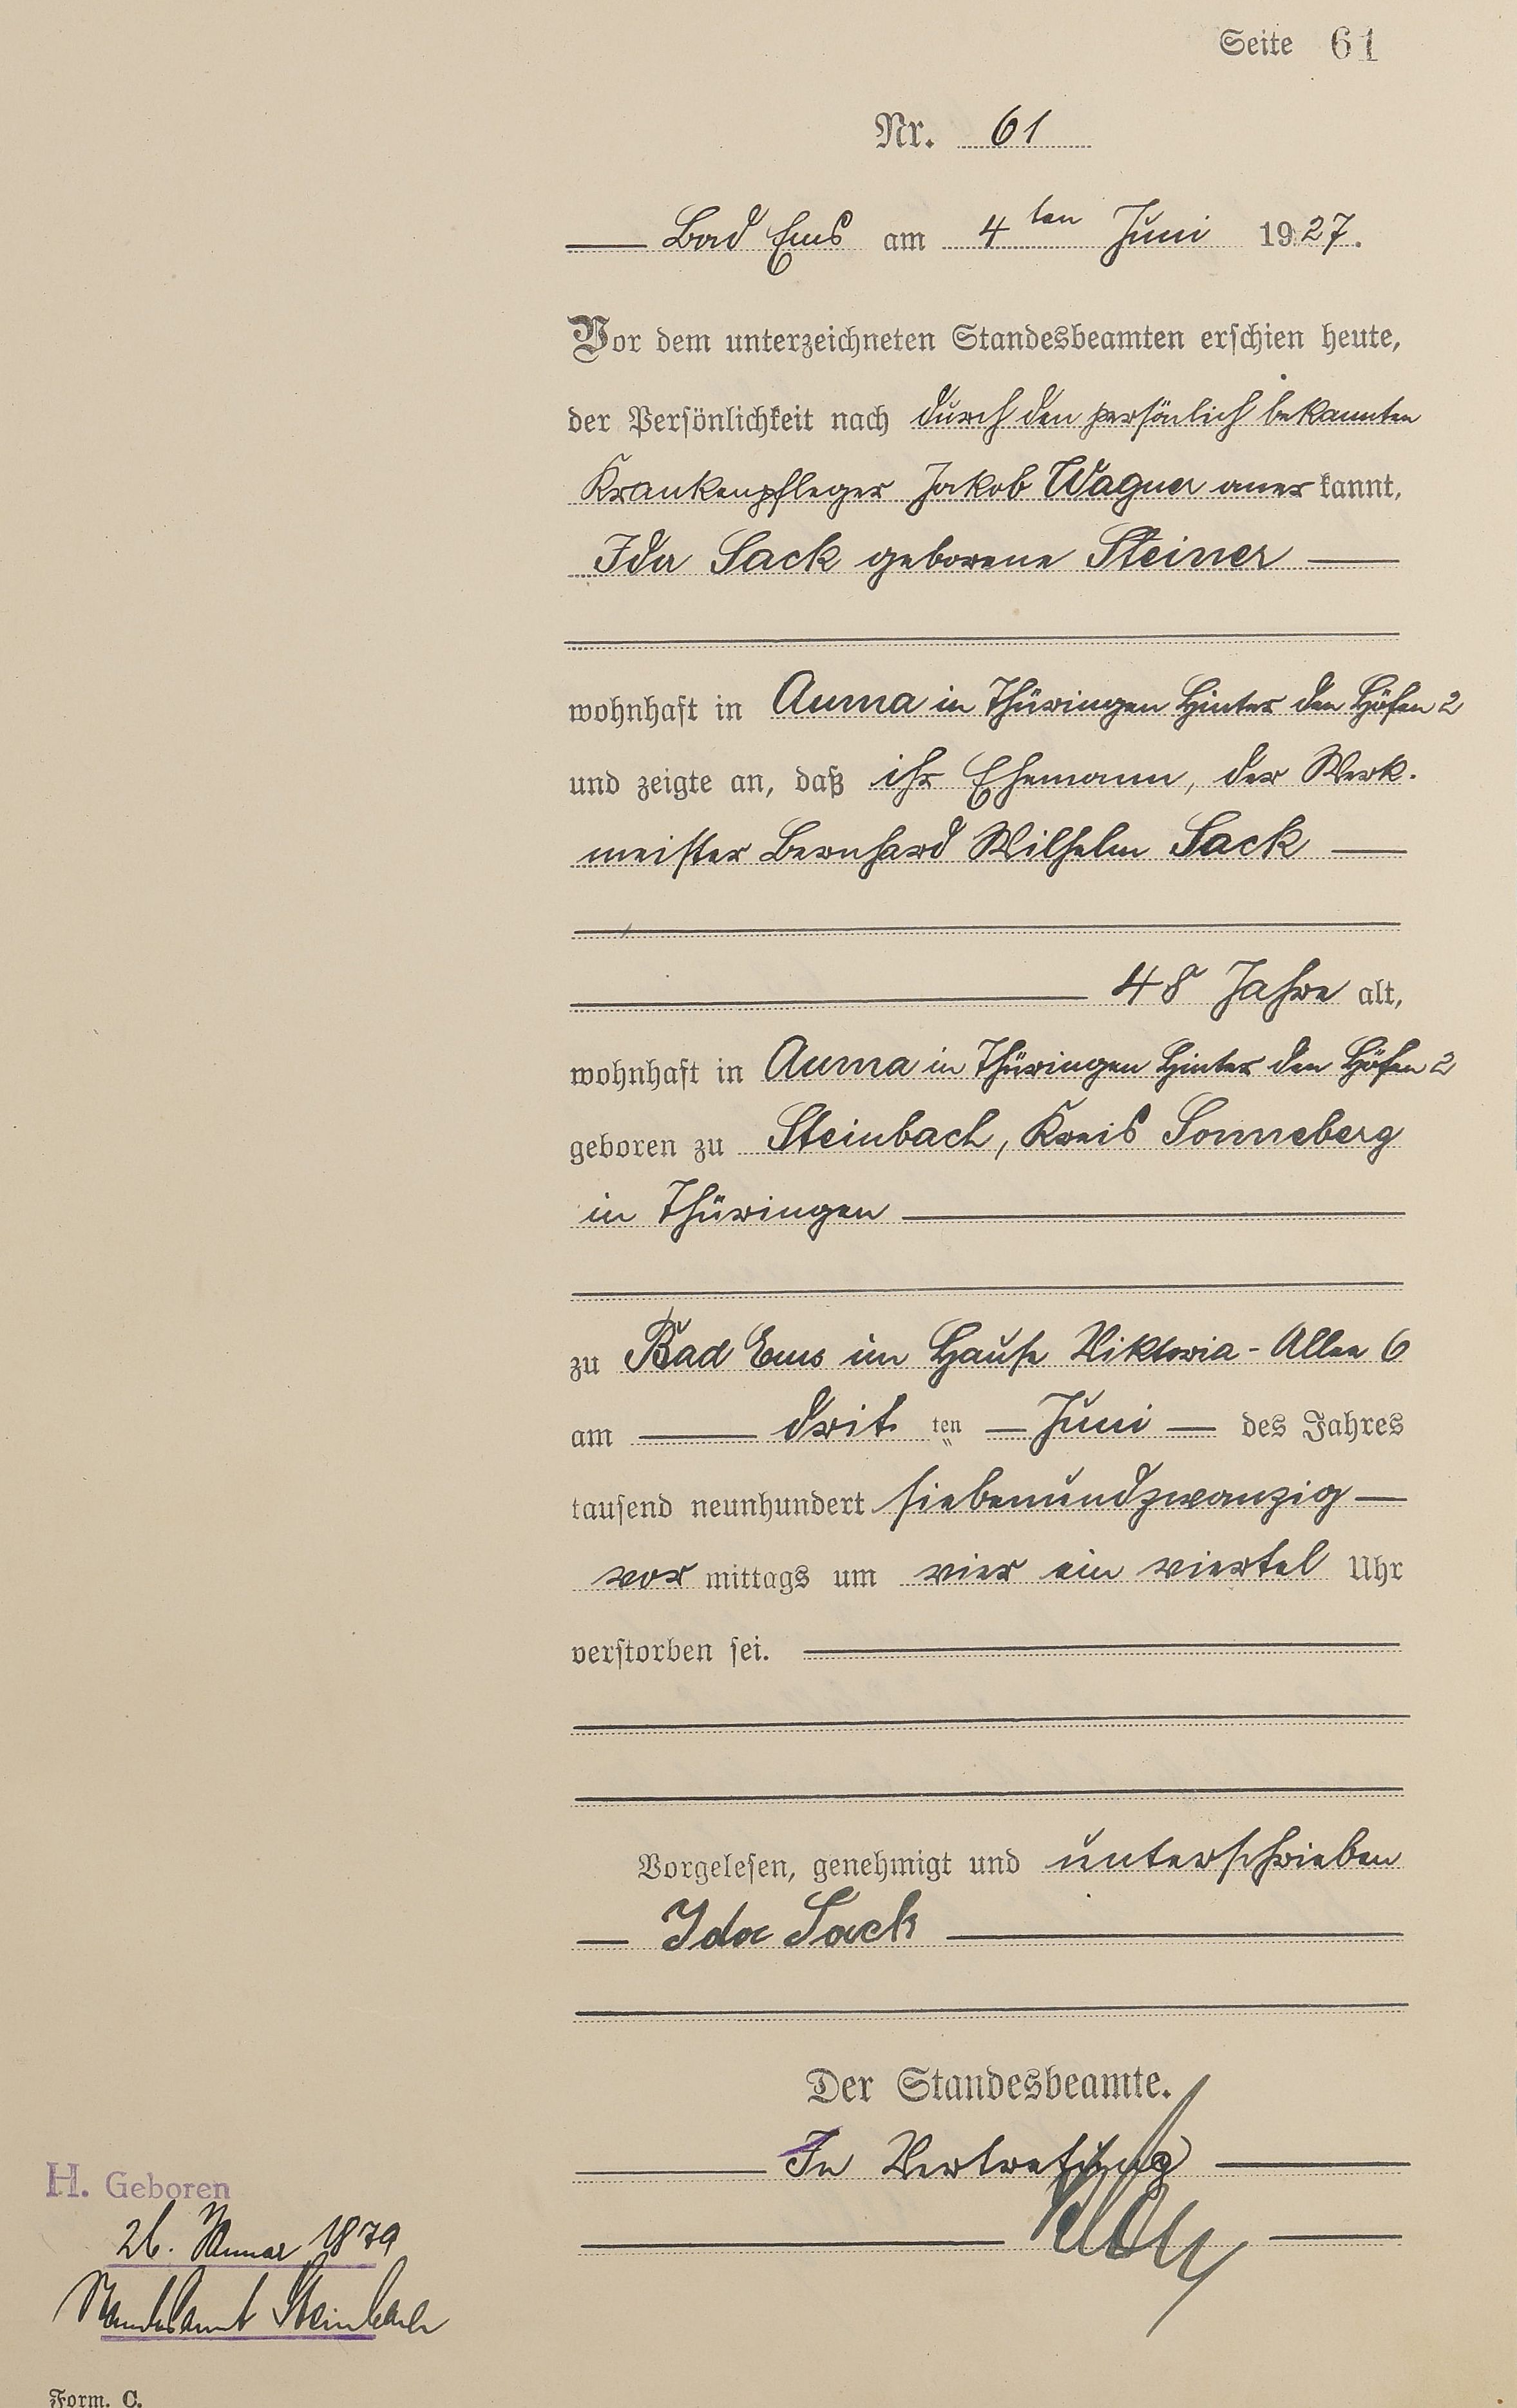 Seite 61
Nr. 61
Bad Ems am 4ten Juni 1927.
Vor dem unterzeichneten Standesbeamten erschien heute,
der Persönlichkeit nach durch den persönlich bekannten
Krankenpfleger Jakob Wagner aner kannt,
Ida Sack geborene Steiner
wohnhaft in Auma in Thüringen Hinter den Höfen 2
und zeigte an, daß ihr Ehemann, der Werk-
meister Bernhard Wilhelm Sack
48 Jahre alt,
wohnhaft in Auma in Thüringen Hinter den Höfen 2
geboren zu Steinbach, Kreis Sonneberg
in Thüringen
zu Bad Ems im Hause Viktoria-Allee 6
am drit ten Juni des Jahres
tausend neunhundert siebenundzwanzig
vor mittags um vier ein viertel Uhr
verstorben sei.
Vorgelesen, genehmigt und unterschrieben
Ida Sack
Der Standesbeamte.
In Vertretung
H. Geboren
26. Januar 1879
Standesamt Steinbach
Form. C.